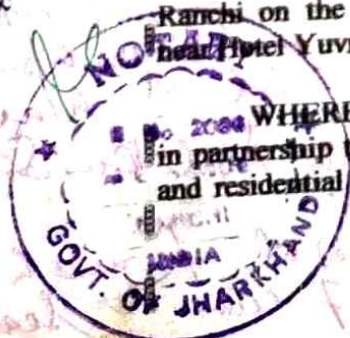 Ranchi on the
near Hotel Yuv
WHERE
in partnership
and residential
NOTARY
INDIA
GOVT. OF JHARKHAND